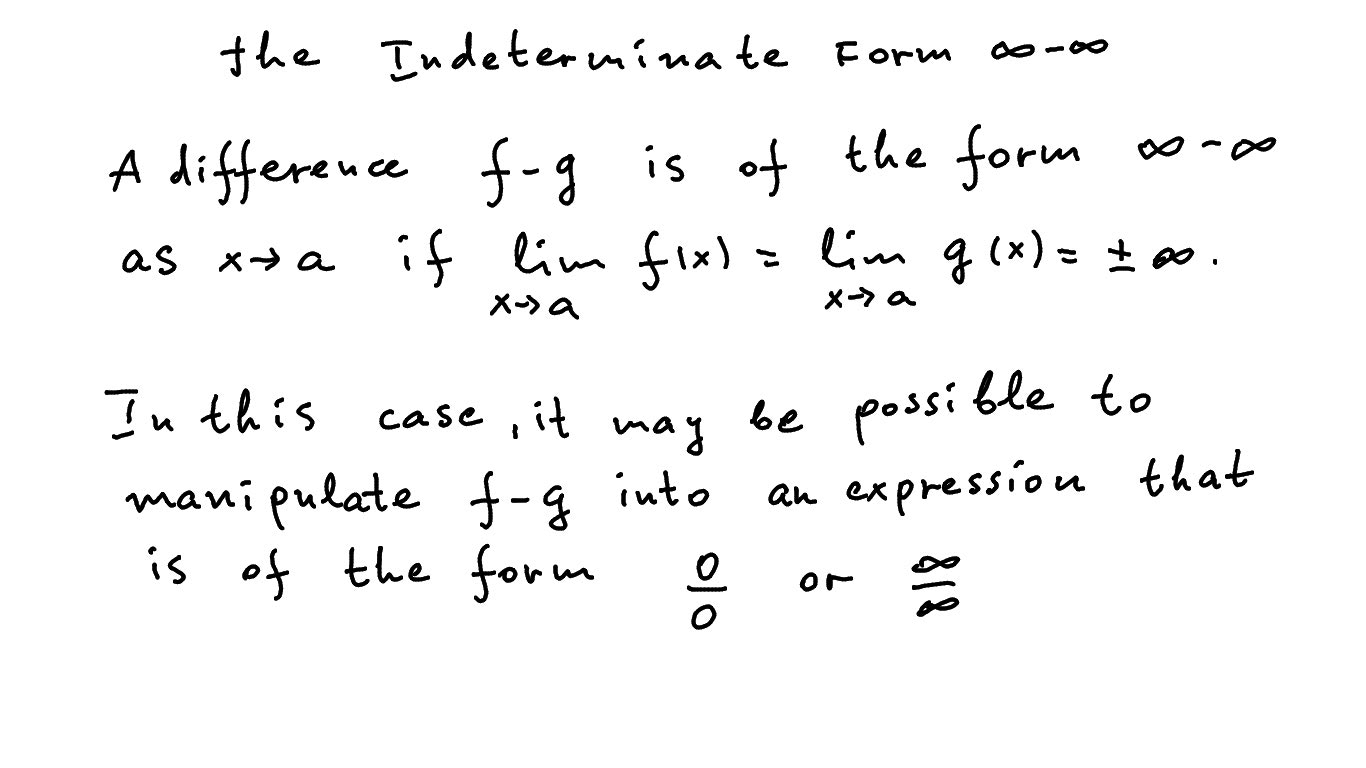 the Indeterminate Form ∞-∞
A difference f-g is of the form ∞-∞
as x→a if lim f(x) = lim g(x) = ±∞.
x→a x→a
In this case, it may be possible to
manipulate f-g into an expression that
is of the form 0/0 or ∞/∞